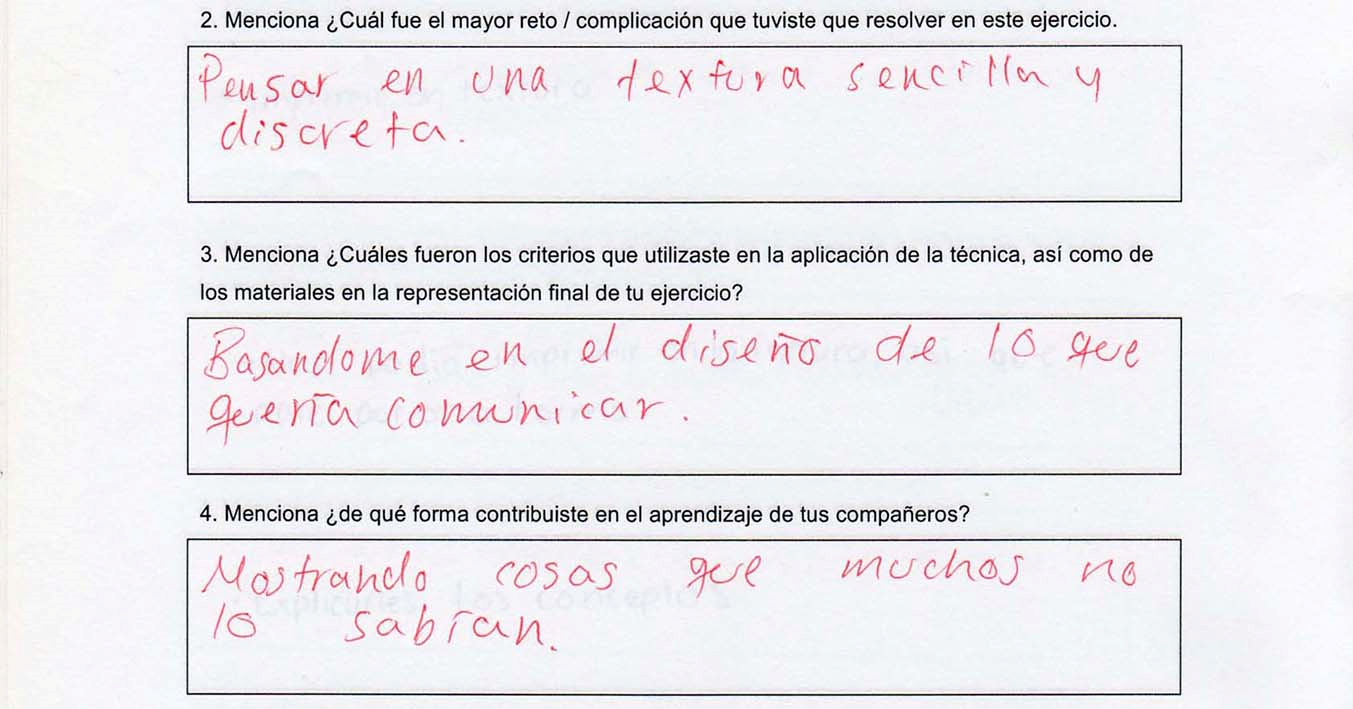 2. Menciona ¿Cuál fue el mayor reto / complicación que tuviste que resolver en este ejercicio.
Pensar en una textura sencilla y
discreta.
3. Menciona ¿Cuáles fueron los criterios que utilizaste en la aplicación de la técnica, así como de
los materiales en la representación final de tu ejercicio?
Basandome en el diseño de lo que
quería comunicar.
4. Menciona ¿de qué forma contribuiste en el aprendizaje de tus compañeros?
Mostrando cosas que muchos no
lo sabían.